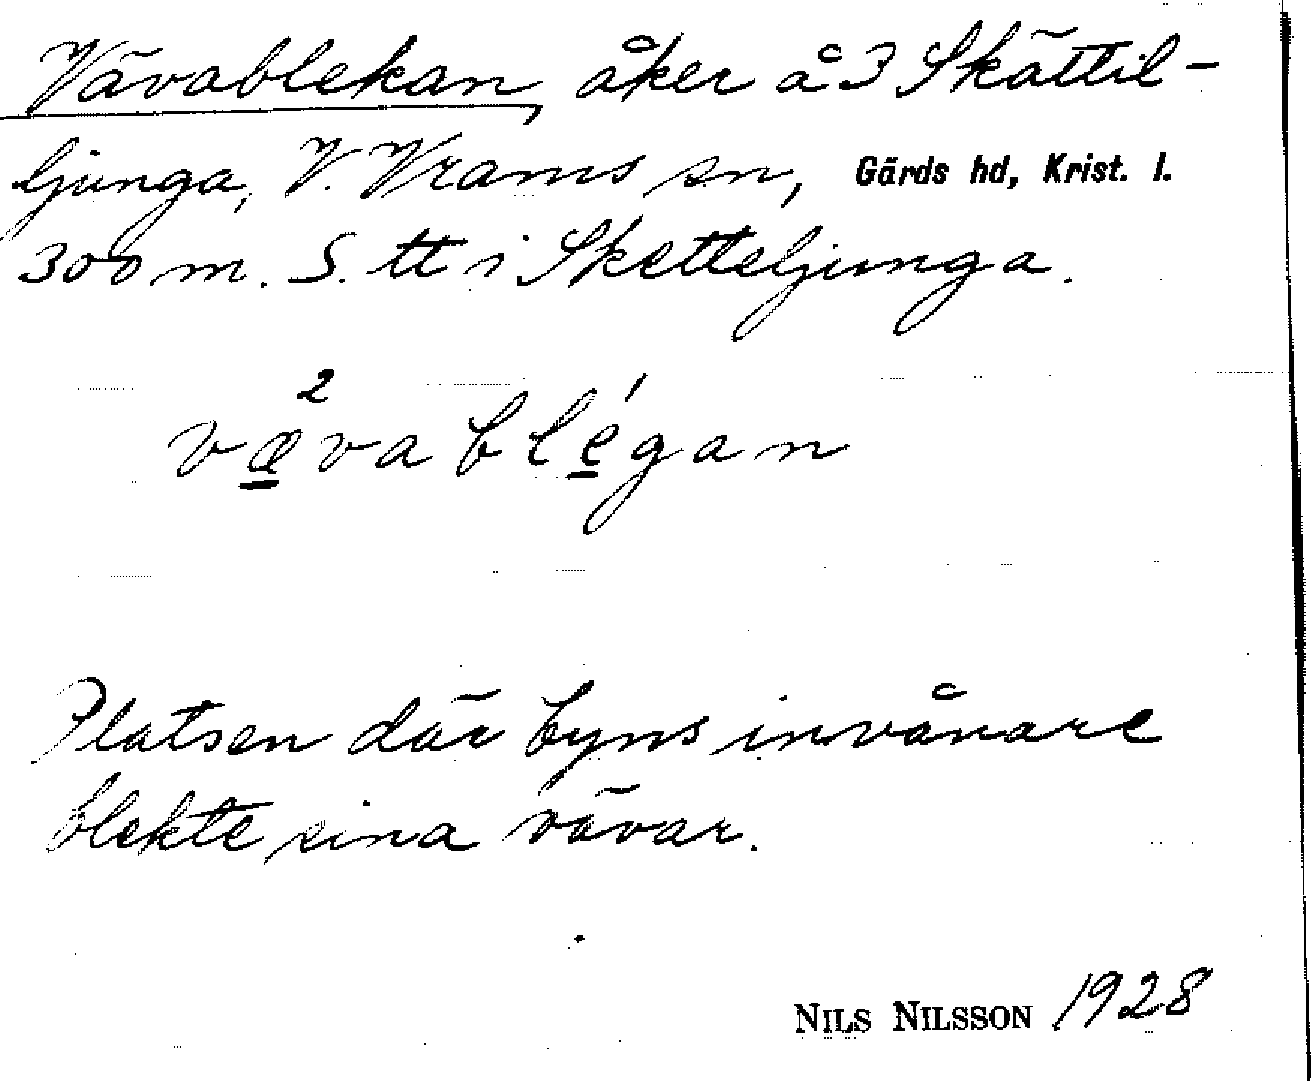 Vävablekan, åker å 3 Skättil-
ljunga, V. Vrams sn, Gärds hd, Krist. l.
300 m. S. tt i Sketteljunga.
2
vævablégan
Platsen där byns invånare
blekte sina vävar.
NILS NILSSON 1928